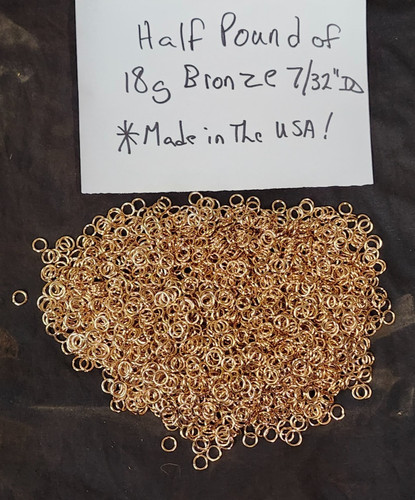 Half Pound of
18g Bronze 7/32" ID
*Made in The USA!